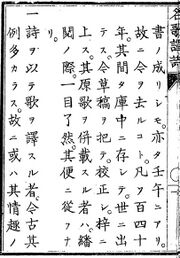 書ノ成リシモ。亦タ壬午ニアリ。
故ニ今ヲ去ルコト。凡ソ百四十
年。其間タ庫中ニ存シテ。世ニ出
テス。今草稿ヲ把テ。校正シ。梓ニ
上ス。其原歌ヲ併載スル者ハ。繙
閲ノ際。一目了然。其便ニ從フナ
リ。
一詩ヲ以テ歌ヲ譯スル者。今古其
例多カラス。故ニ或ハ其情趣ノ